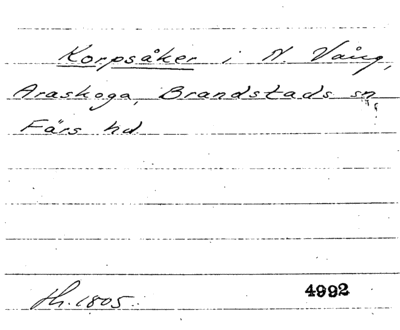 Korpsåker i N. Vång,
Araskoga, Brandstads sn,
Färs hd
Hh. 1805. 4992